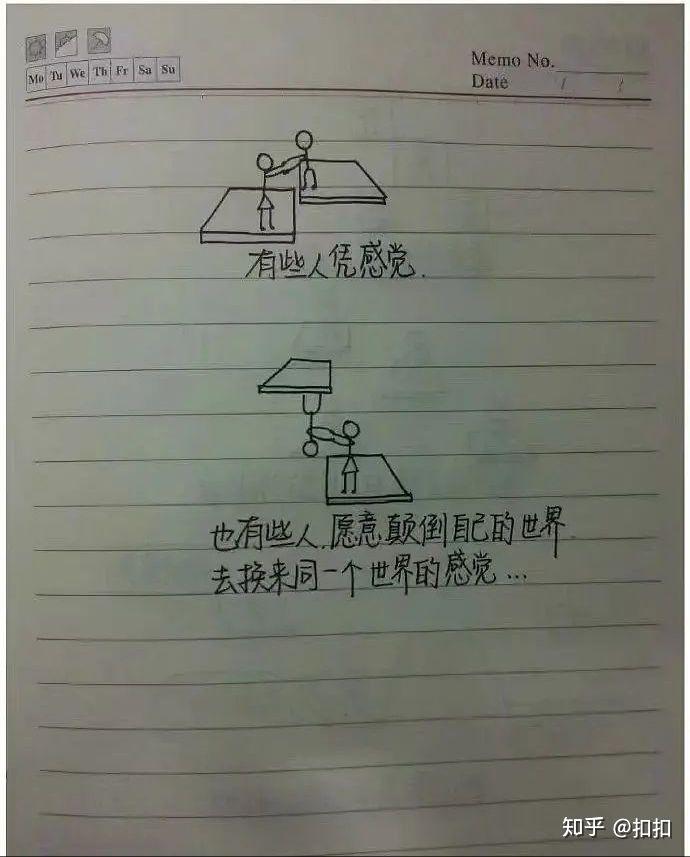 Memo No.
Mo Tu We Th Fr Sa Su
Date / /
有些人凭感觉.
也有些人.愿意颠倒自己的世界.
去换来同一个世界的感觉...
知乎 @扣扣